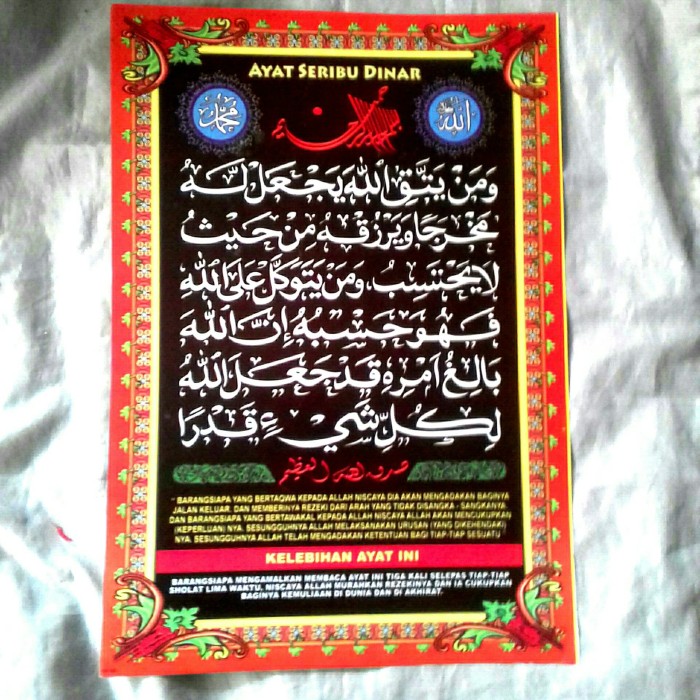 AYAT SERIBU DINAR
محمد
الله
وَمَنْ يَتَّقِ اللهَ يَجْعَلْ لَهُ
مَخْرَجًا وَيَرْزُقْهُ مِنْ حَيْثُ
لَا يَحْتَسِبُ، وَمَنْ يَتَوَكَّلْ عَلَى اللهِ
فَهُوَ حَسْبُهُ إِنَّ اللهَ
بَالِغُ أَمْرِهِ قَدْ جَعَلَ اللهُ
لِكُلِّ شَيْءٍ قَدْرًا
صدق الله العظيم
"BARANGSIAPA YANG BERTAQWA KEPADA ALLAH NISCAYA DIA AKAN MENGADAKAN BAGINYA
JALAN KELUAR, DAN MEMBERINYA REZEKI DARI ARAH YANG TIDAK DISANGKA - SANGKANYA
DAN BARANGSIAPA YANG BERTAWAKAL KEPADA ALLAH NISCAYA ALLAH AKAN MENCUKUPKAN
(KEPERLUAN) NYA. SESUNGGUHNYA ALLAH MELAKSANAKAN URUSAN (YANG DIKEHENDAKI)
NYA. SESUNGGUHNYA ALLAH TELAH MENGADAKAN KETENTUAN BAGI TIAP-TIAP SESUATU"
KELEBIHAN AYAT INI
BARANGSIAPA MENGAMALKAN MEMBACA AYAT INI TIGA KALI SELEPAS TIAP-TIAP
SHOLAT LIMA WAKTU, NISCAYA ALLAH MURAHKAN REZEKINYA DAN IA CUKUPKAN
BAGINYA KEMULIAAN DI DUNIA DAN DI AKHIRAT.